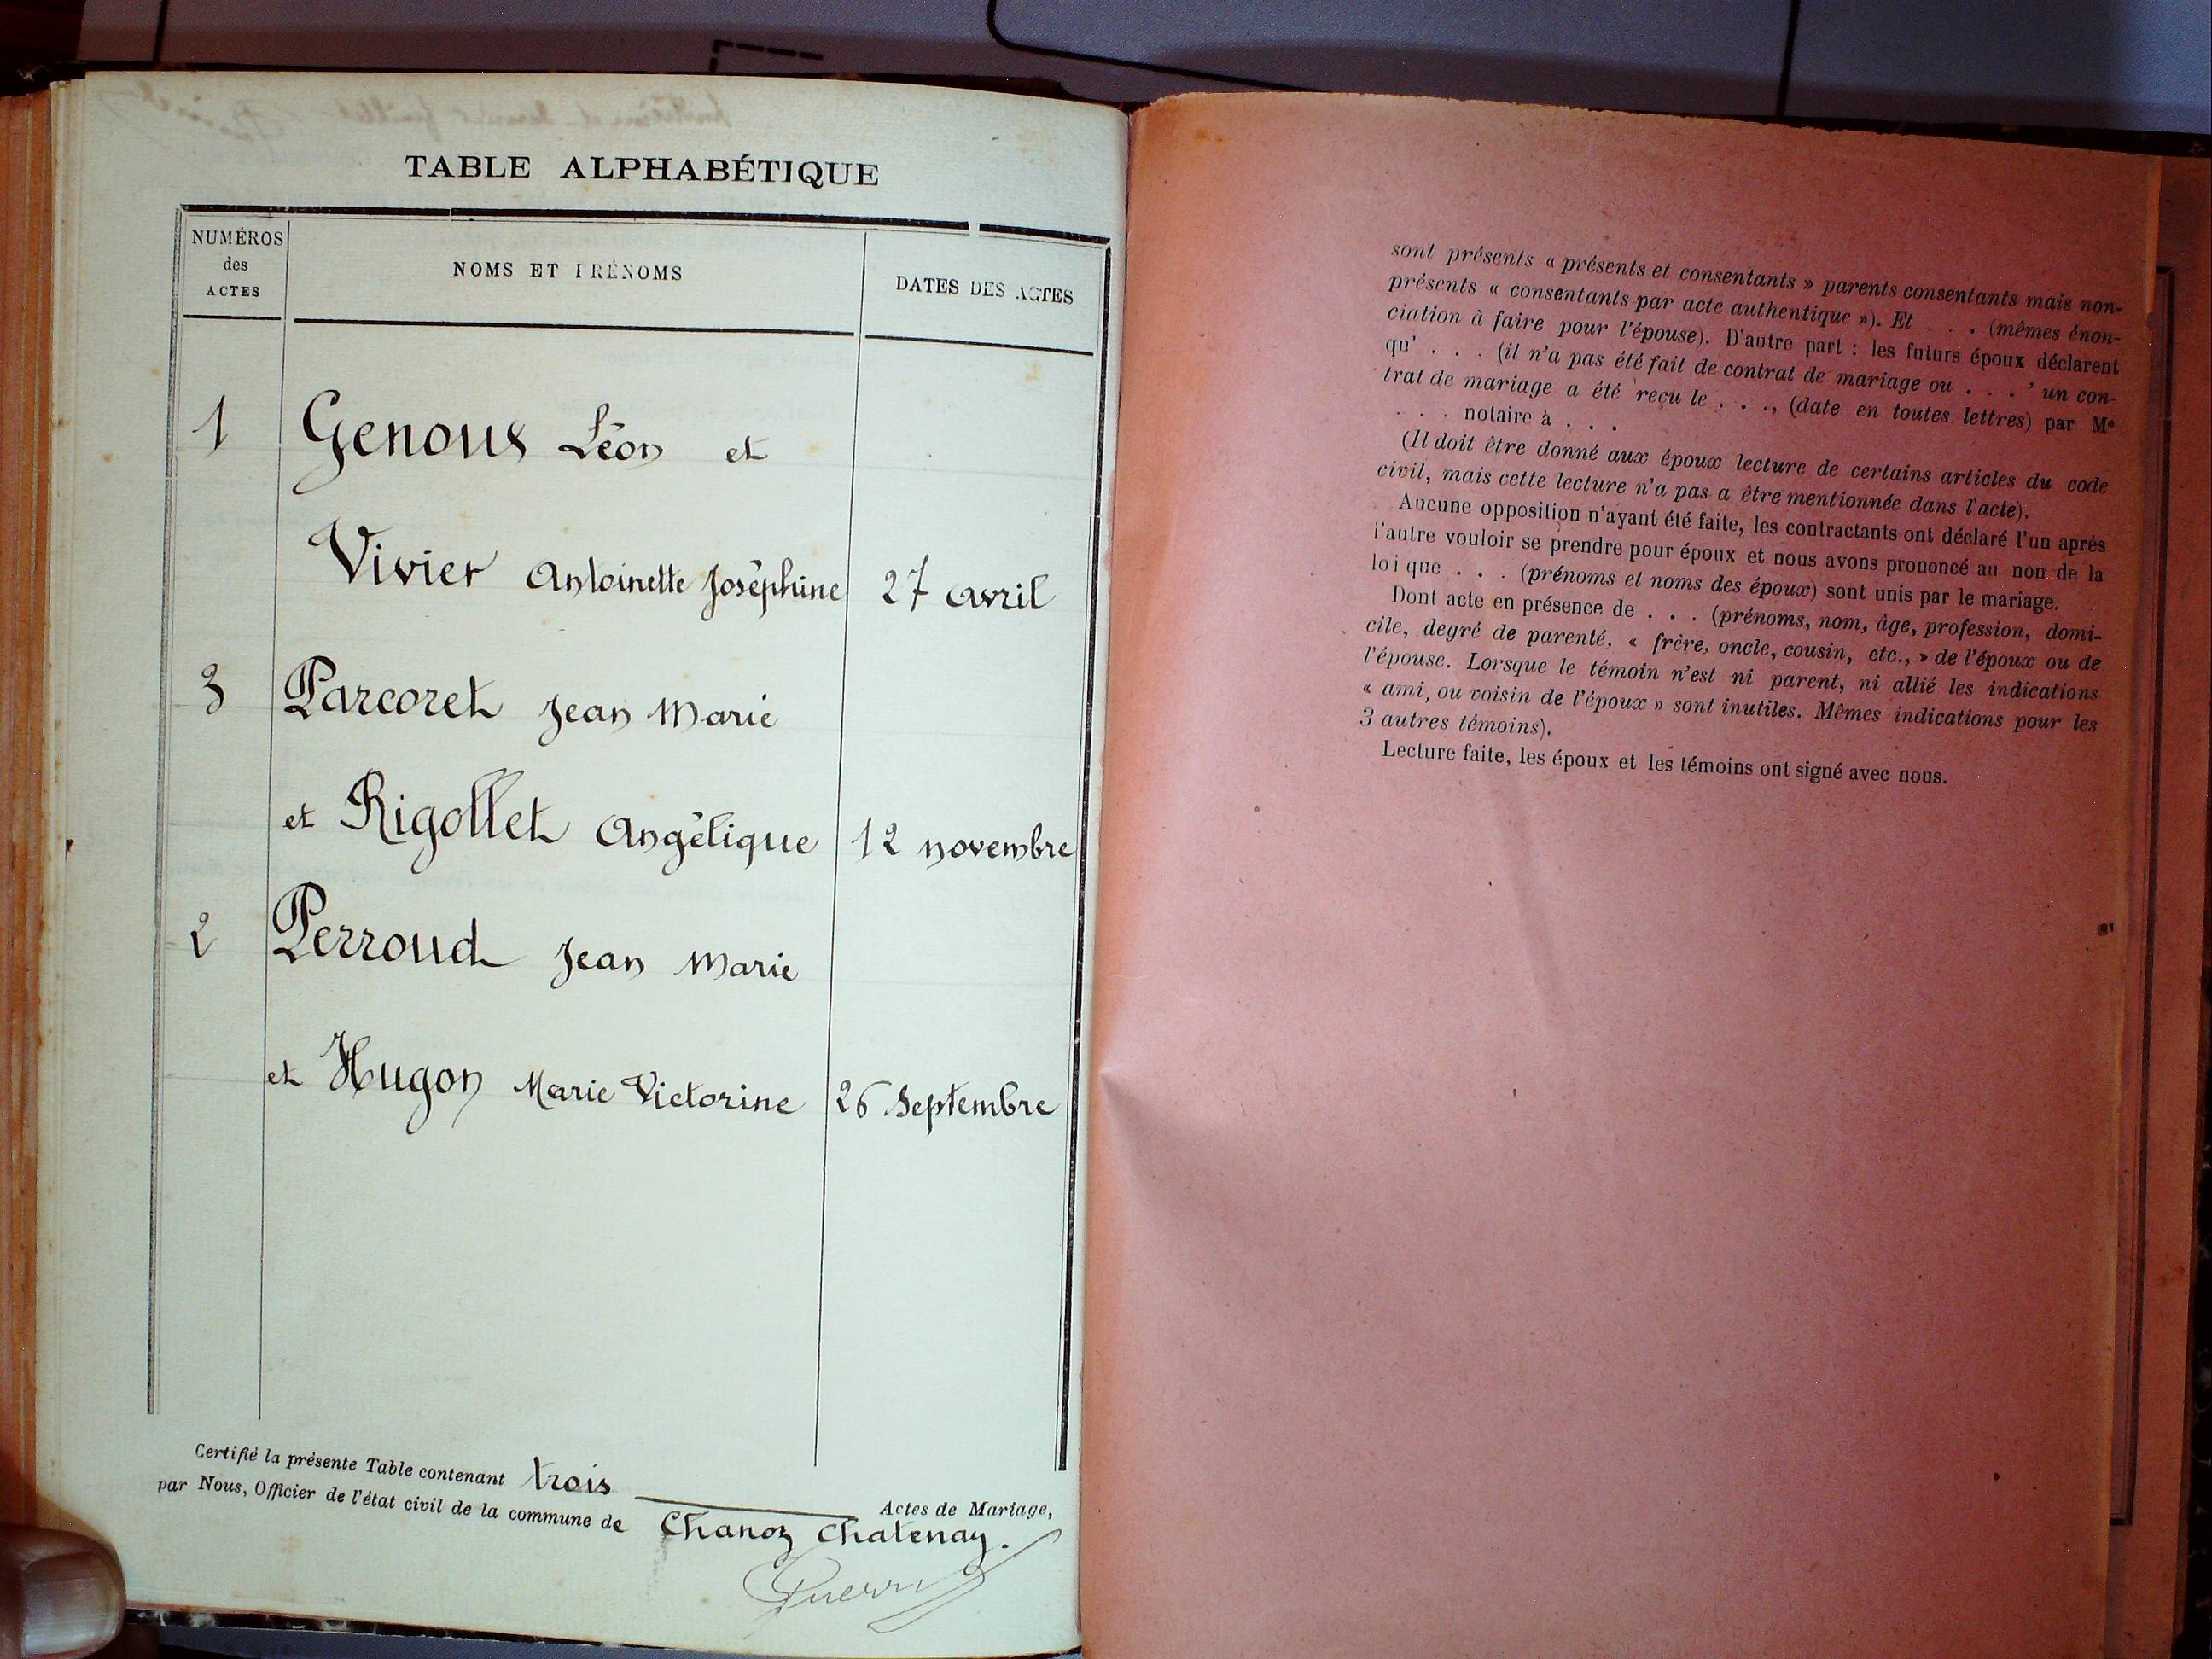 TABLE ALPHABÉTIQUE
NUMÉROS
des
ACTES
NOMS ET PRÉNOMS
DATES DES ACTES
1 Genoux Léon et
Vivier Antoinette Joséphine 27 avril
3 Parcoret Jean Marie
et Rigollet Angélique 12 novembre
2 Perroud Jean Marie
et Hugon Marie Victorine 26 Septembre
Certifié la présente Table contenant trois Actes de Mariage,
par Nous, Officier de l'état civil de la commune de Chanoz Chatenay.
sont présents « présents et consentants » parents consentants mais non-
présents « consentants par acte authentique »). Et . . . (mêmes énon-
ciation à faire pour l'épouse). D'autre part : les futurs époux déclarent
qu' . . . (il n'a pas été fait de contrat de mariage ou . . . ' un con-
trat de mariage a été reçu le . . ., (date en toutes lettres) par Me
. . . notaire à . . .
(Il doit être donné aux époux lecture de certains articles du code
civil, mais cette lecture n'a pas a être mentionnée dans l'acte).
Aucune opposition n'ayant été faite, les contractants ont déclaré l'un après
l'autre vouloir se prendre pour époux et nous avons prononcé au non de la
loi que . . . (prénoms et noms des époux) sont unis par le mariage.
Dont acte en présence de . . . (prénoms, nom, âge, profession, domi-
cile, degré de parenté. « frère, oncle, cousin, etc., » de l'époux ou de
l'épouse. Lorsque le témoin n'est ni parent, ni allié les indications
« ami, ou voisin de l'époux » sont inutiles. Mêmes indications pour les
3 autres témoins).
Lecture faite, les époux et les témoins ont signé avec nous.